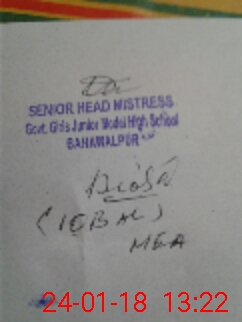 SENIOR HEAD MISTRESS
Govt. Girls Junior Model High School
BAHAWALPUR
(IQBAL)
MEA
24-01-18 13:22